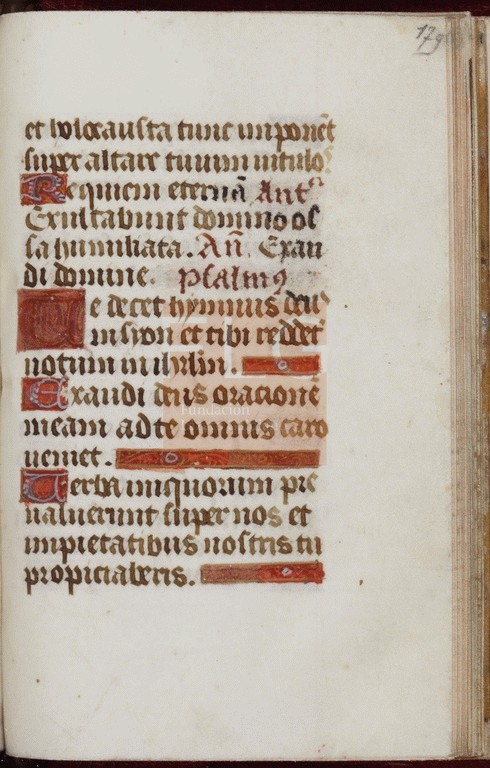 179
et holocausta tunc imponēt
super altare tuum uitulos
Requiem eternā Antᵃ
Exultabunt domino os
sa humiliata. An̄. Exau
di domine. psalmꝯ
Te decet hymnus deus
in syon et tibi reddet̉
notum in ihrlm̄.
Exaudi deus orationē
meam ad te omnis caro
ueniet.
Fundación
Uerba iniquorum pre
ualuerunt super nos et
impietatibus nostris tu
propiciaberis.